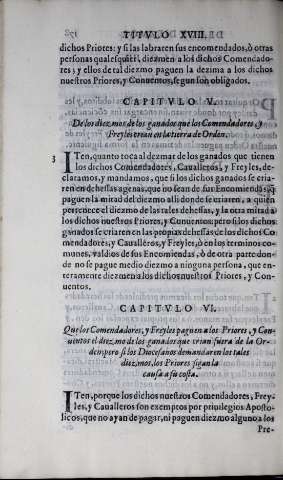 TITVLO XVIII.
dichos Priores: y si las labraren sus encomendados, ò otras
personas qualesquier, diezmen a los dichos Comendado-
res; y ellos de tal diezmo paguen la dezima a los dichos
nuestros Priores, y Conuentos, segun son obligados.
CAPITVLO V.
De los diezmos de los ganados que los Comendadores, y
Freyles crean en la tierra de Orden.
3
ITen, quanto toca al dezmar de los ganados que tienen
los dichos Comendadores, Caualleros, y Freyles, de-
claramos, y mandamos, que si los dichos ganados se cria-
ren en dehessas agenas, que no sean de sus Encomiendas, q̃
paguen la mitad del diezmo alli donde se criaren, a quien
pertenece el diezmo de los tales dehessas, y la otra mitad a
los dichos nuestros Priores, y Conuentos; pero si los dichos
ganados se criaren en las propias dehessas de los dichos Co-
mendadores, y Caualleros, y Freyles, ò en los terminos co-
munes, valdios de sus Encomiendas, ò de otra parte don-
de no se pague medio diezmo a ninguna persona, que en-
teramente diezmen a los dichos nuestros Priores, y Con-
uentos.
CAPITVLO VI.
Que los Comendadores, y Freyles paguen a los Priores, y Con-
uentos el diezmo de los ganados que crian fuera de la Or-
den; pero si los Diocesanos demandaren los tales
diezmos, los Priores sigan la
causa a su costa.
ITen, porque los dichos nuestros Comendadores, Frey-
les, y Caualleros son exemptos por priuilegios Aposto-
licos, que no ayan de pagar, ni paguen diezmo alguno a los
Pre-